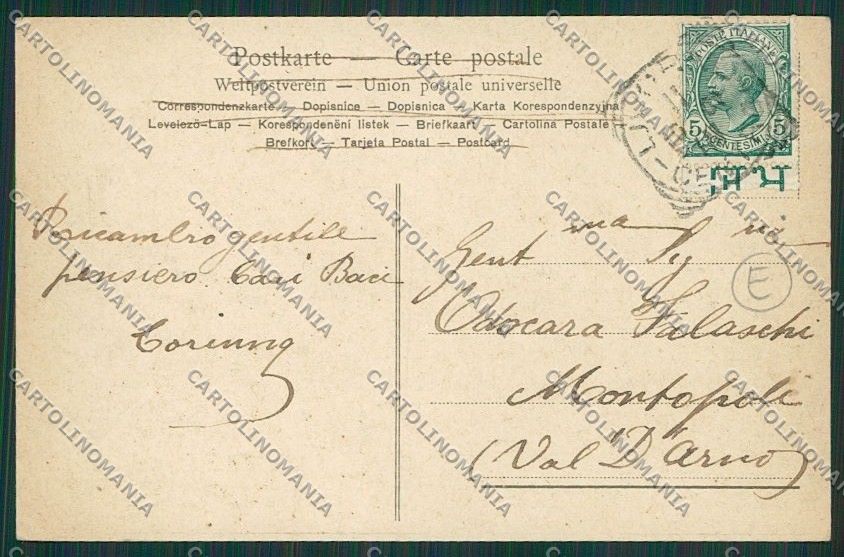 Postkarte — Carte postale
Weltpostverein — Union postale universelle
Correspondenzkarte — Dopisnice — Dopisnica — Karta Korespondenzyjna
Levelező-Lap — Korespondenční listek — Briefkaart — Cartolina Postale
Brefkort — Tarjeta Postal — Postcard
POSTE ITALIANE
5 5
CENTESIMI
Ricambro gentile
pensiero. Cari Baci
Gent ma Sig na
E
Odocara Falaschi
Montopoli
(Val D'Arno)
CARTOLINOMANIA